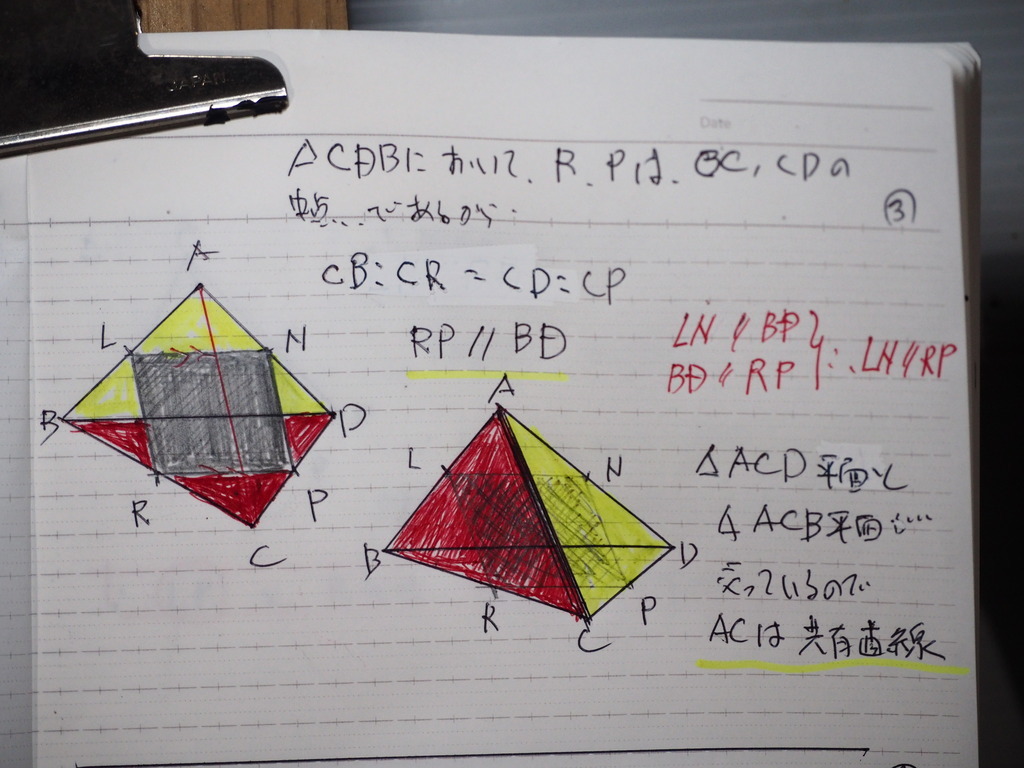 JAPAN
Date
△CDBにおいて、R、Pは、BC, CDの
中点…であるから.
③
CB:CR = CD:CP
RP // BD
LN // BD
BD // RP
∴ LN // RP
A
L
N
B
D
R
P
C
A
L
N
B
D
R
P
C
△ACD平面と
△ACB平面は…
交っているので
ACは共有直線